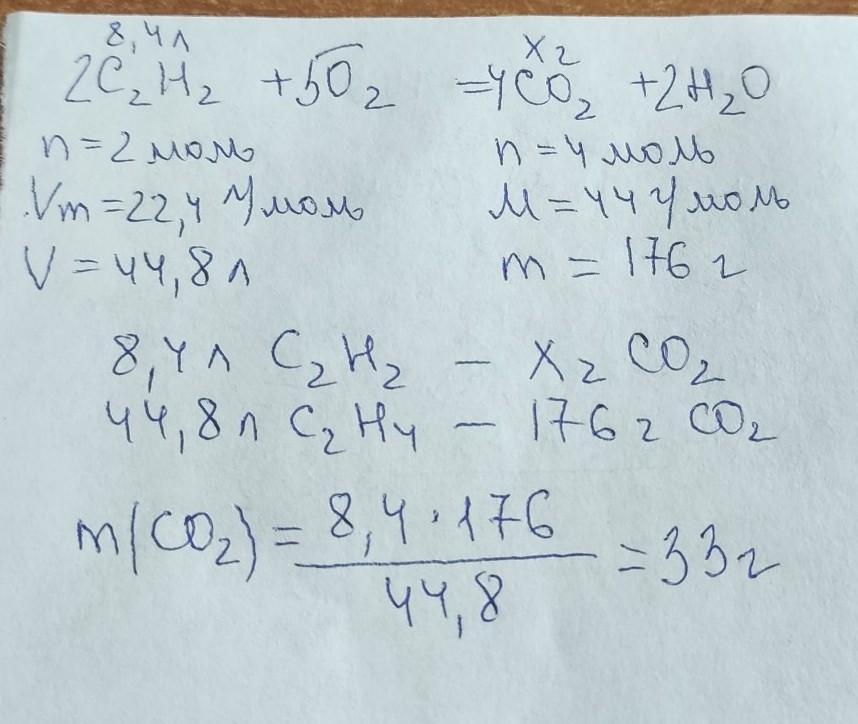 8,4л xг
2C₂H₂ +5O₂ =4CO₂ +2H₂O
n=2 моль n=4 моль
Vm=22,4 л/моль M=44 г/моль
V=44,8 л m=176 г
8,4 л C₂H₂ – x г CO₂
44,8 л C₂H₄ – 176 г CO₂
m(CO₂)= 8,4·176 / 44,8 =33 г